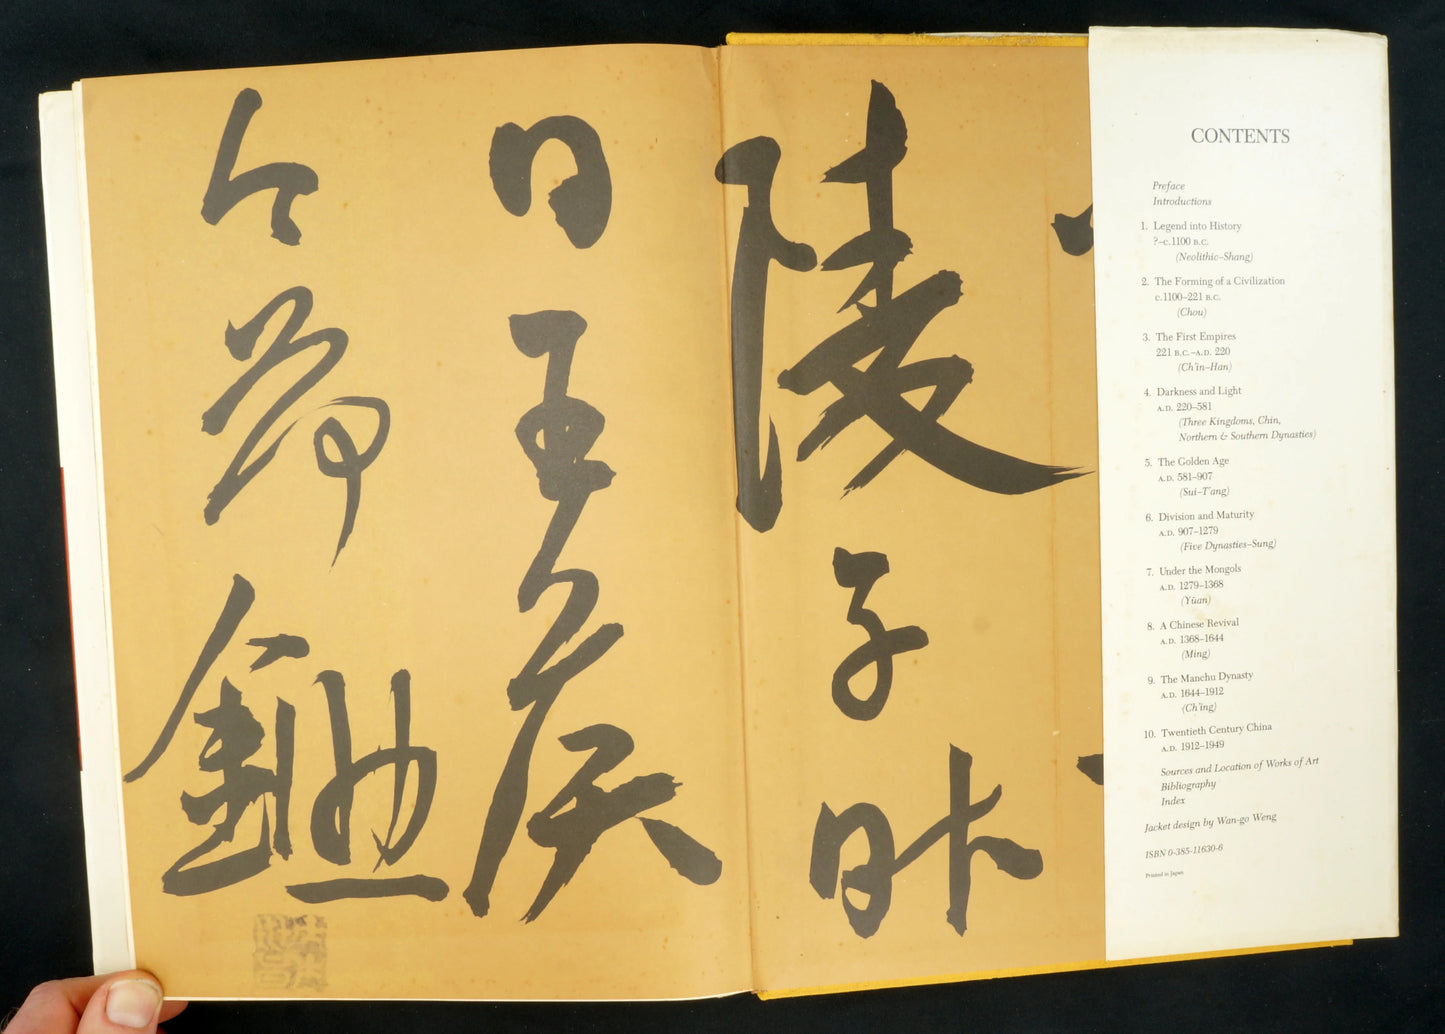 陵子昨
日王侯
今荷鋤
CONTENTS
Preface
Introductions
1. Legend into History
?–c.1100 B.C.
(Neolithic–Shang)
2. The Forming of a Civilization
c.1100–221 B.C.
(Chou)
3. The First Empires
221 B.C.–A.D. 220
(Ch'in–Han)
4. Darkness and Light
A.D. 220–581
(Three Kingdoms, Chin,
Northern & Southern Dynasties)
5. The Golden Age
A.D. 581–907
(Sui–T'ang)
6. Division and Maturity
A.D. 907–1279
(Five Dynasties–Sung)
7. Under the Mongols
A.D. 1279–1368
(Yüan)
8. A Chinese Revival
A.D. 1368–1644
(Ming)
9. The Manchu Dynasty
A.D. 1644–1912
(Ch'ing)
10. Twentieth Century China
A.D. 1912–1949
Sources and Location of Works of Art
Bibliography
Index
Jacket design by Wan-go Weng
ISBN 0-385-11630-6
Printed in Japan